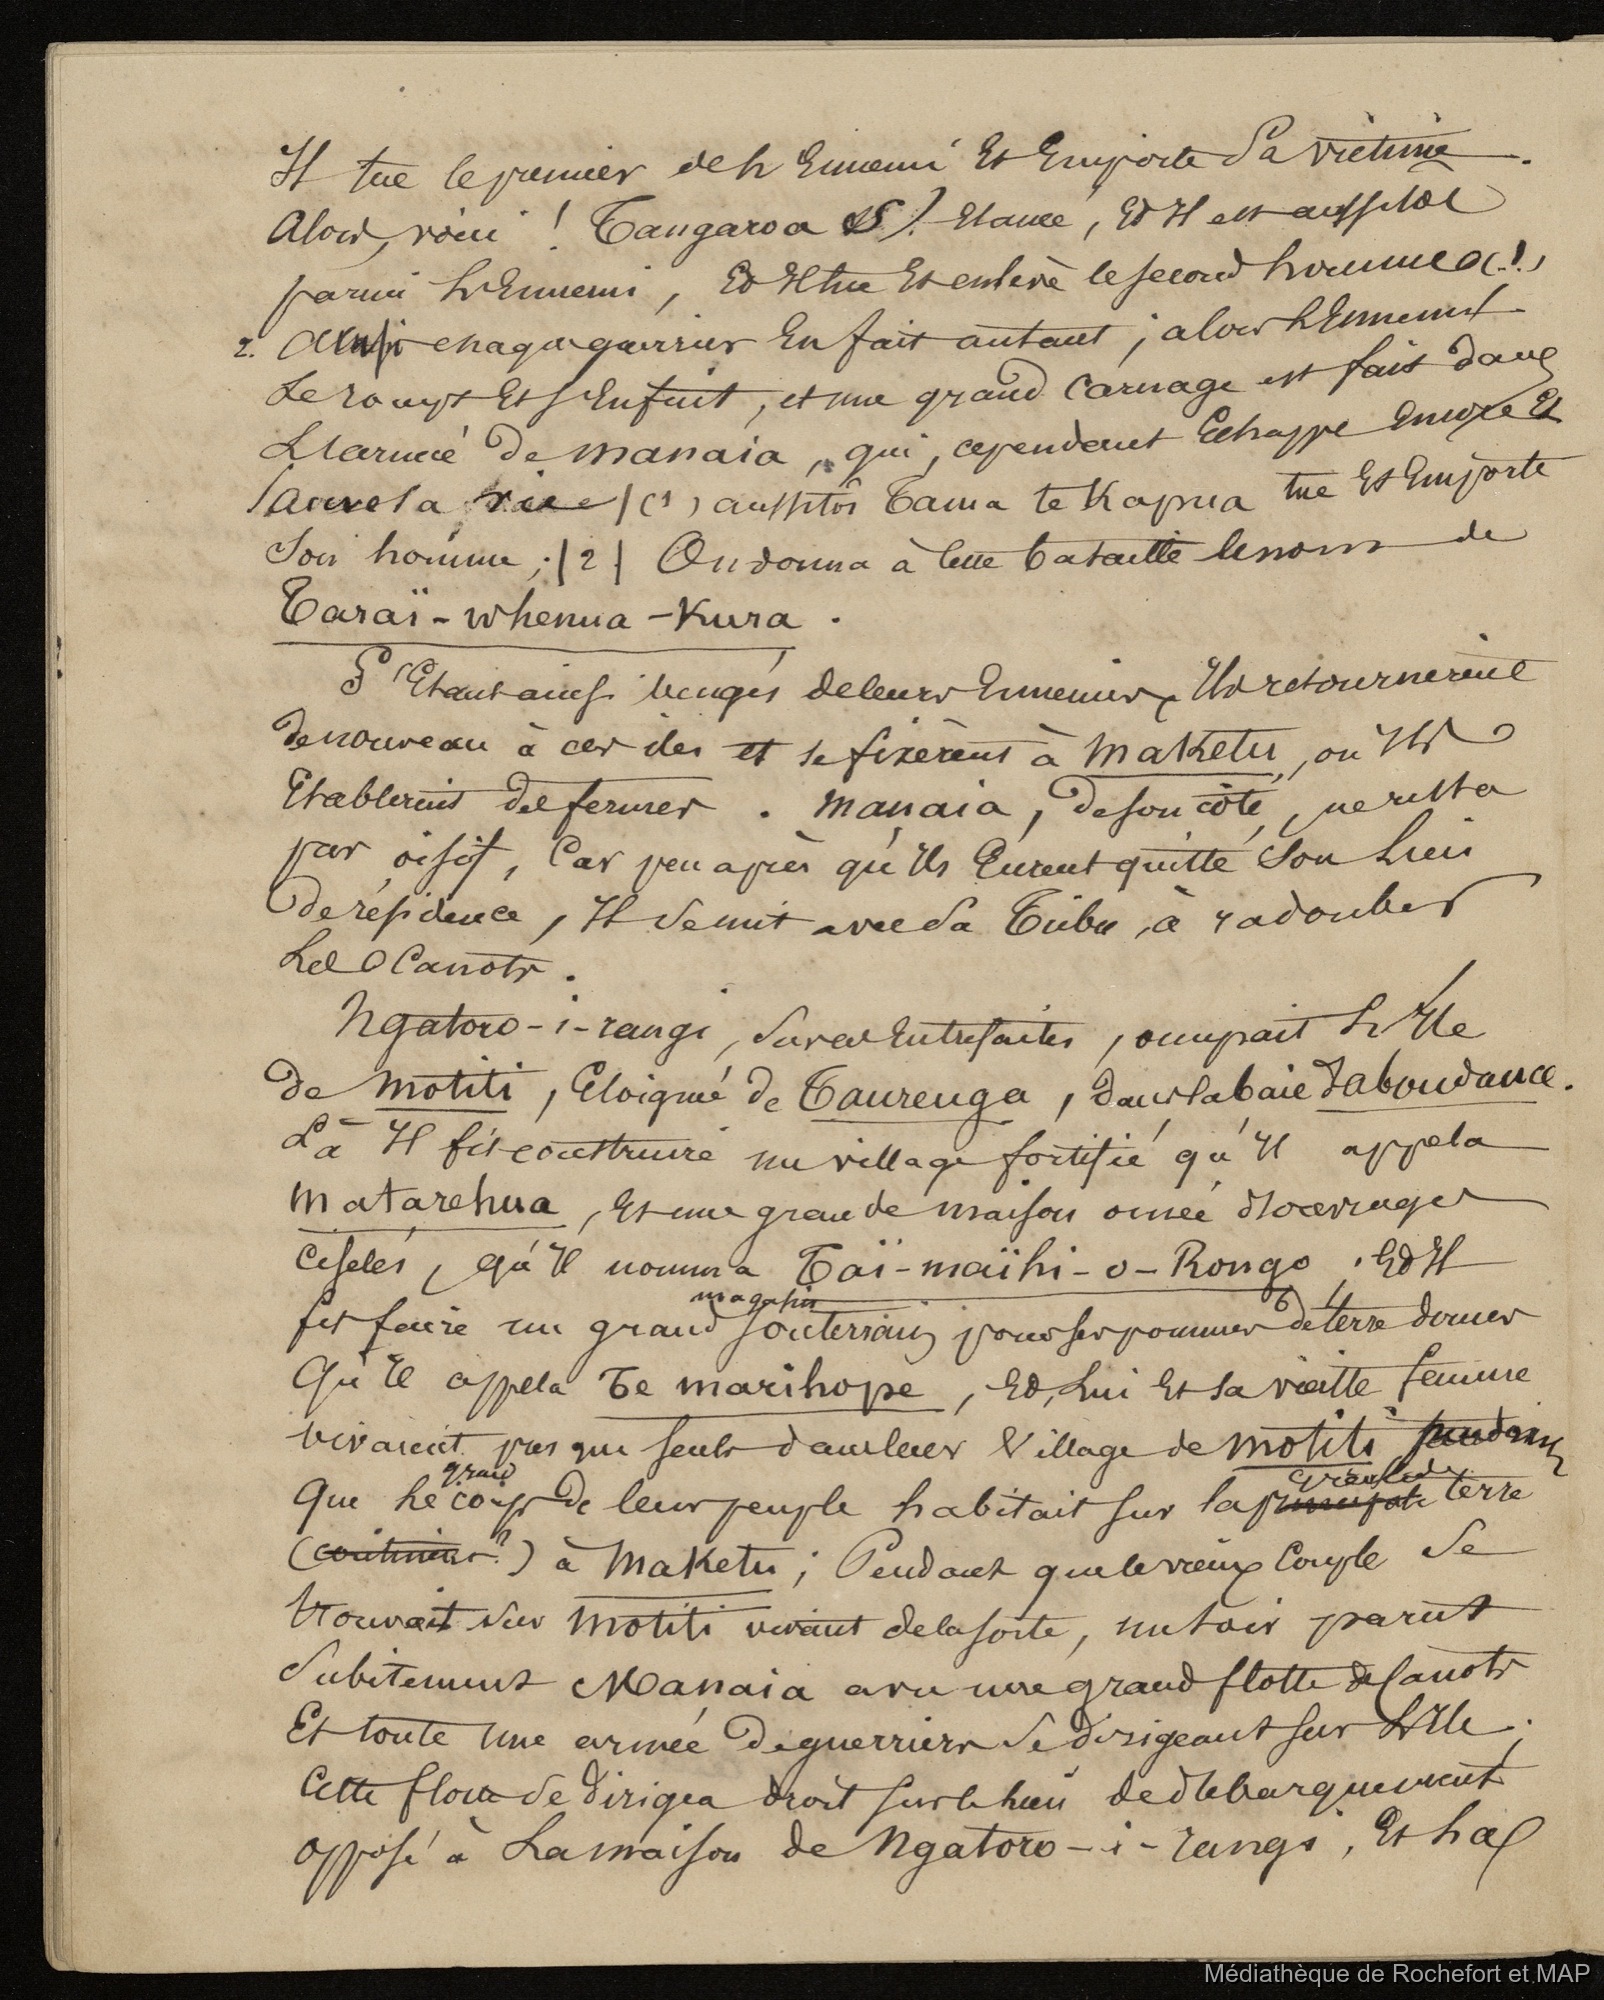 Il tue le premier de l'Ennemi Et Emporte Sa victime.
Alors, voici ! Tangaroa s'Elance, Et Il est aussitôt
parmi l'Ennemi, Et Il tue Et enlève le second homme (1)
2. Ainsi chaque guerrier En fait autant ; alors l'Ennemi
Se rompt Et s'Enfuit, et un grand Carnage est fait dans
L'armée de Manaia, qui, cependant Echappe Encore Et
Sauve sa vie / (1) aussitôt Tama te Kapua tue Et Emporte
Son homme ; /2/ On donna à cette bataille le nom de
Taraï-whenua-Kura.
S'Etant ainsi vengés de leurs Ennemis, Ils retournèrent
de nouveau à ces iles et se fixèrent à Maketu, où Ils
Etablirent des fermes. Manaia, de son côté, ne resta
pas oisif, Car peu après qu'Ils Eurent quitté Son Lieu
de résidence, Il Se mit avec Sa Tribu, à radouber
Les Canots.
Ngatoro-i-rangi, Sur ces Entrefaites, occupait L'Ile
de Motiti, Eloigné de Taurenga, dans la baie d'abondance.
Là Il fit construire un village fortifié qu'Il appela
Matarehua, Et une grande maison ornée d'ouvrages
Ciselés, qu'Il nomma Taï-maïhi-o-Rongo, Et Il
magasin
fit faire un grand souterrain pour ses pommes de terre douces
Qu'Il appela Te marihope, Et, Lui Et sa vieille femme
vivaient presque seuls dans leur Village de Motiti pendant
grand grande
Que le corps de leur peuple habitait sur la principale terre
(continent ?) à Maketu ; Pendant que le vieux Couple Se
trouvait Sur Motiti vivant de la sorte, un soir parut
Subitement Manaia avec une grand flotte de Canots
Et toute une armée de guerriers Se dirigeant sur L'Ile ;
Cette flotte Se dirigea droit sur le lieu de débarquement
opposé à La maison de Ngatoro-i-rangi, Et hal
Médiathèque de Rochefort et MAP